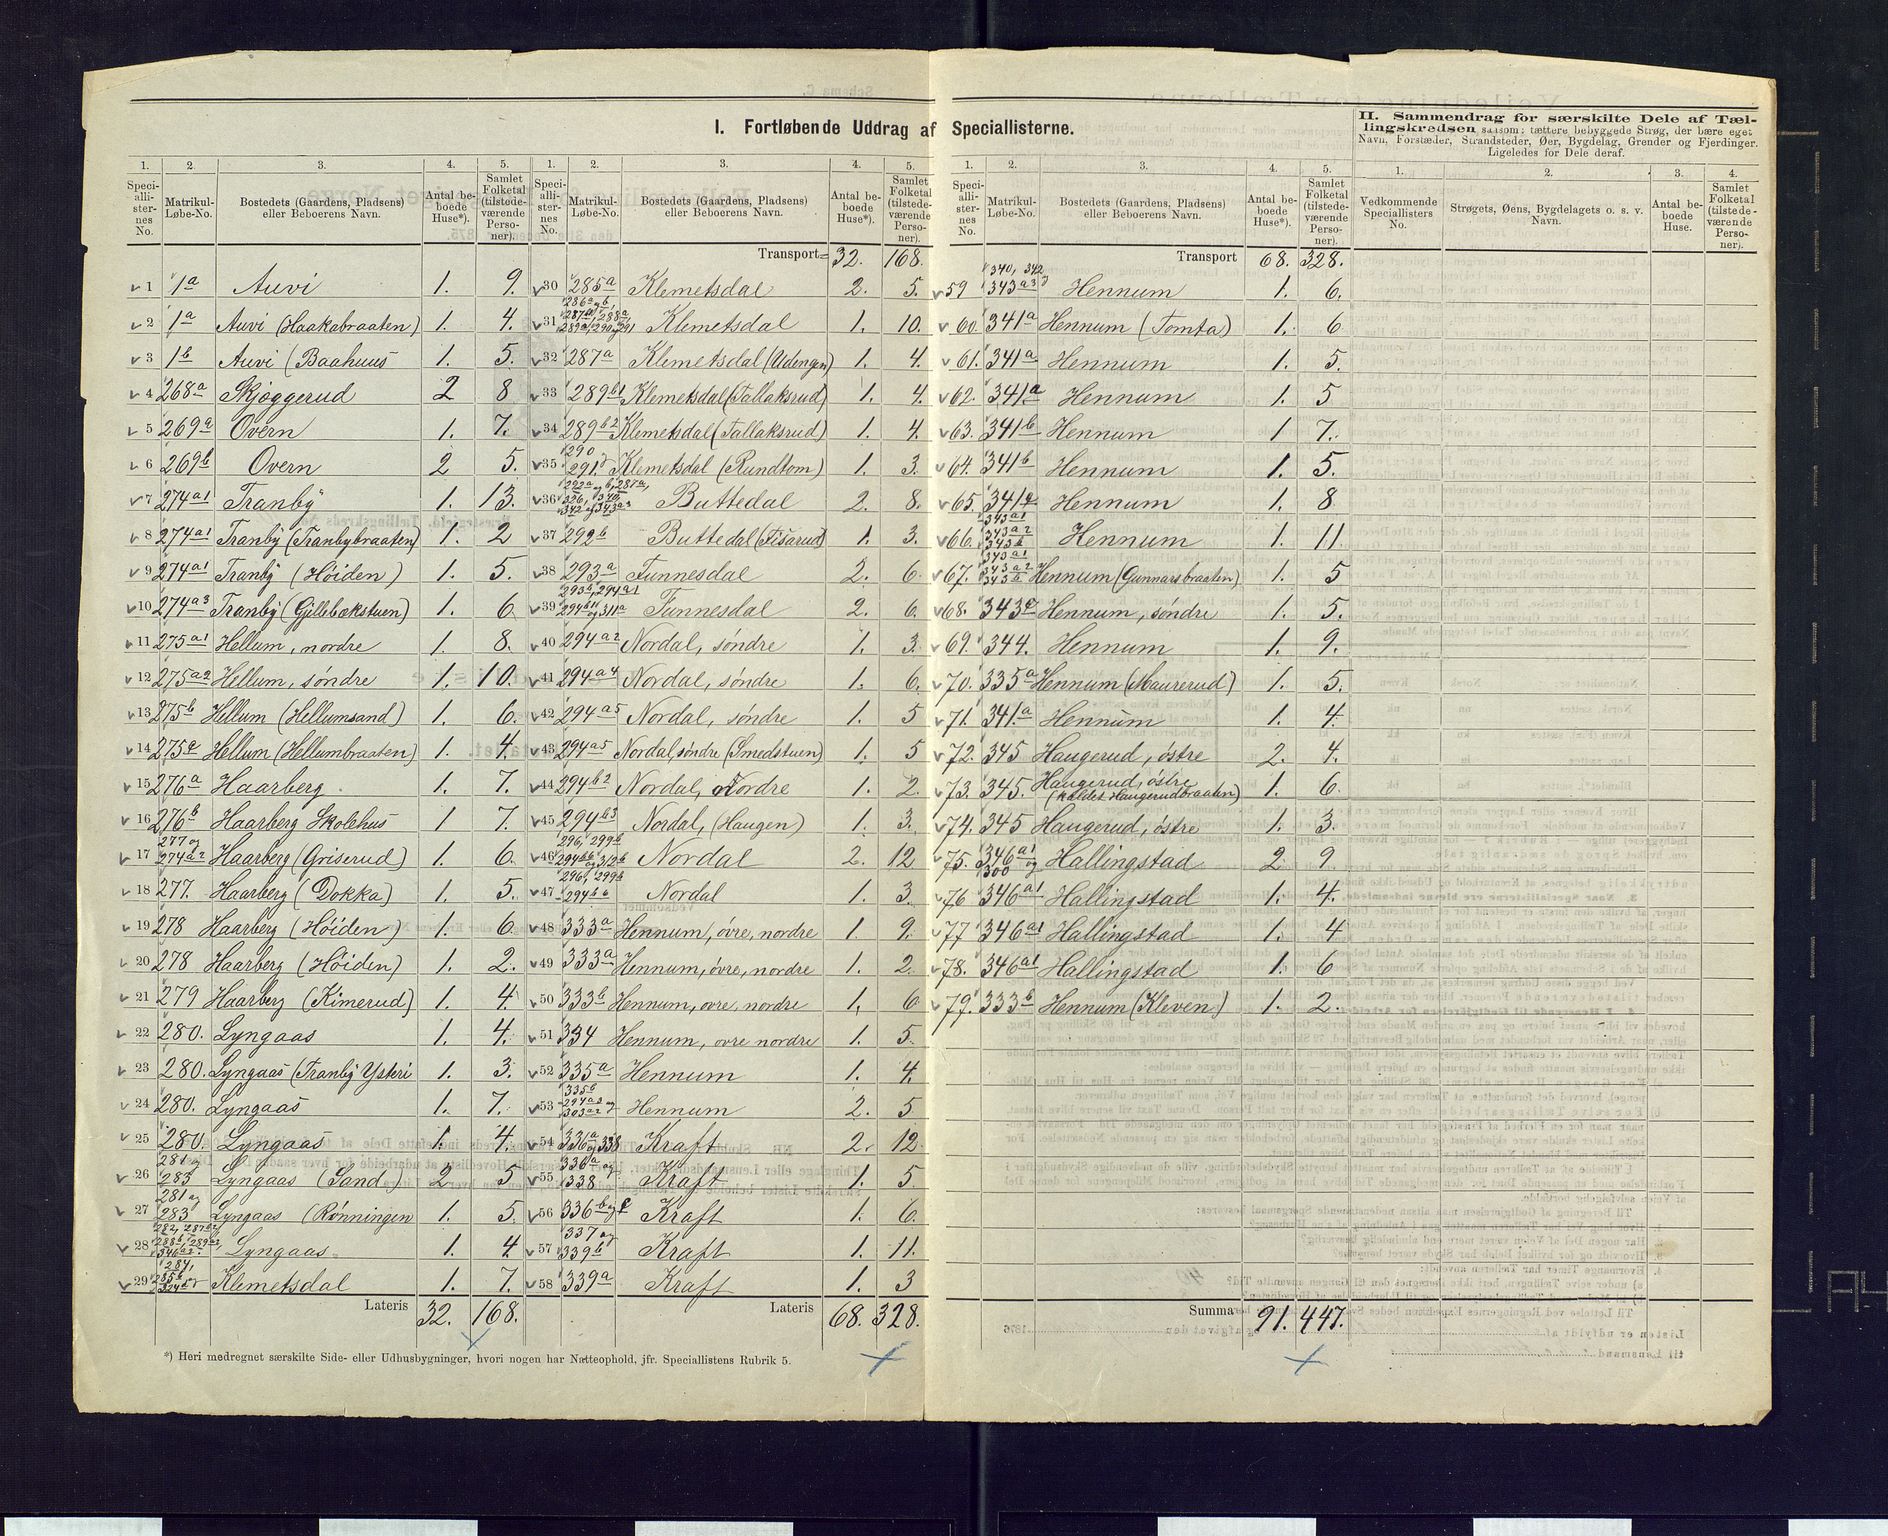 I. Fortløbende Uddrag af Speciallisterne.
II. Sammendrag for særskilte Dele af Tæl-
lingskredsen saasom: tættere bebyggede Strøg, der bære eget
Navn, Forstæder, Strandsteder, Øer, Bygdelag, Grender og Fjerdinger.
Ligeledes for Dele deraf.
1. 2. 3. 4. 5.
Speci-allister-nes No. Matrikul-Løbe-No. Bostedets (Gaardens, Pladsens) eller Beboerens Navn. Antal be-boede Huse*). Samlet Folketal (tilstede-værende Perso-ner).
1 1a Auvi 1. 9.
2 1a Auvi (Haakabraaten) 1. 4.
3 1b Auvi (Baahuus 1. 5.
4 268a Skjøggerud 2 8
5 269a Overn 1. 7.
6 269b Overn 2 5.
7 274a1 Tranby 1. 13.
8 274a1 Tranby (Tranbybraaten) 1. 2
9 274a1 Tranby (Höiden) 1. 5.
10 274a3 Tranby (Gjilbækstuen) 1. 6.
11 275a1 Hellum, nordre 1. 8.
12 275a2 Hellum, søndre 1. 10.
13 275b Hellum (Hellumsand) 1. 6.
14 275a Hellum (Hellumbraaten) 1. 4.
15 276a Haarberg 1. 7.
16 276b Haarberg Skolehus 1 7.
17 277 og 274a2 Haarberg (Griserud) 1. 6.
18 277. Haarberg (Dokka) 1. 5.
19 278 Haarberg (Höiden) 1. 6.
20 278 Haarberg (Höiden) 1. 2.
21 279 Haarberg (Kimerud) 1. 4.
22 280. Lyngaas 1. 4.
23 280. Lyngaas (Tranby Ysteri 1. 3.
24 280. Lyngaas 1. 7.
25 280. Lyngaas 1. 4.
26 281 og 283 Lyngaas (Sand) 2 5
27 281 og 283 Lyngaas (Rønningen 1. 5.
28 282, 287b2, 288b, 289a2, 346a2. Lyngaas 1. 4.
29 284, 285b Klemetsdal 1. 7.
Lateris 32. 168.
*) Heri medregnet særskilte Side- eller Udhusbygninger, hvori nogen har Natteophold, jfr. Speciallistens Rubrik 5.
1. 2. 3. 4. 5.
Speci-allister-nes No. Matrikul-Løbe-No. Bostedets (Gaardens, Pladsens) eller Beboerens Navn. Antal be-boede Huse*). Samlet Folketal (tilstede-værende Perso-ner).
Transport 32. 168.
30 285a Klemetsdal 2. 5.
31 Klemetsdal 1. 10.
32 287a Klemetsdal (Udengen) 1. 4.
33 289b1 Klemetsdal (Tallaksrud) 1. 4.
34 289b2 Klemetsdal (Tallaksrud) 1. 4.
35 290 291. Klemetsdal (Rundtom) 1. 3.
36 Buttedal 2. 8.
37 292b Buttedal (Fisarud) 1. 3.
38 293a Tunnesdal 2. 6.
39 293a, 294a1 294b1 og 311a Tunnesdal 2. 6.
40 294a2 Nordal, søndre 1. 3.
41 294a4 Nordal, søndre 1. 6.
42 294a5 Nordal, søndre 1. 5
43 294a5 Nordal, søndre (Smedstuen) 1. 5
44 294b2 Nordal, Nordre 1. 2.
45 294b3 Nordal, (Haugen) 1. 3.
46 296, 299b 294b6 og 312b Nordal 2. 12
47 296, 299b 294b6 Nordal 1. 3.
48 333a Hennum, övre, nordre 1. 9.
49 333a Hennum, övre, nordre 1. 2.
50 333b Hennum, ovre, nordre 1. 6
51 334 Hennum, ovre nordre 1. 5
52 335a Hennum 1. 4.
53 335b 294a3 og 303a2 Hennum 2. 5
54 336a og 338 Kraft 2. 12.
55 336a og 338 Kraft 1. 5.
56 336b og c Kraft 1. 6.
57 337 og 339b Kraft 1. 11.
58 339a Kraft 1. 3
Lateris 68. 328.
1. 2. 3. 4. 5.
Speci-allister-nes No. Matrikul-Løbe-No. Bostedets (Gaardens, Pladsens) eller Beboerens Navn. Antal be-boede Huse*). Samlet Folketal (tilstede-værende Perso-ner).
Transport 68. 328.
59 340, 342 343a3 Hennum 1. 6.
60. 341a Hennum (Tomta) 1. 6
61. 341a Hennum 1. 5.
62. 341a Hennum 1. 5
63. 341b Hennum 1 7.
64. 341b Hennum 1. 5.
65. 341a Hennum 1. 8
66. 343a1 343a2 343b Hennum 1. 11.
67. 343a1 343a2 343b Hennum (Gunnarsbraaten) 1. 5
68. 343c Hennum, søndre 1. 5.
69. 344. Hennum 1. 9.
70. 335a Hennum (Maurerud) 1. 5.
71. 341.a Hennum 1. 4.
72. 345 Haugerud, östre 2. 4.
73. 345. Haugerud, östre (kaldet Haugerudbraaten) 1. 6.
74. 345 Haugerud, östre 1. 3.
75. 346a1 og 300 Hallingstad 2 9
76 346a1 Hallingstad 1. 4.
77 346a1 Hallingstad 1. 4
78. 346a1 Hallingstad 1. 6
79. 333b Hennum (Kleven) 1. 2.
Summa 91. 447.
1. 2. 3. 4.
Vedkommende Speciallisters No. Strøgets, Øens, Bygdelagets o. s. v. Navn. Antal be-boede Huse. Samlet Folketal (tilstede-værende Perso-ner).